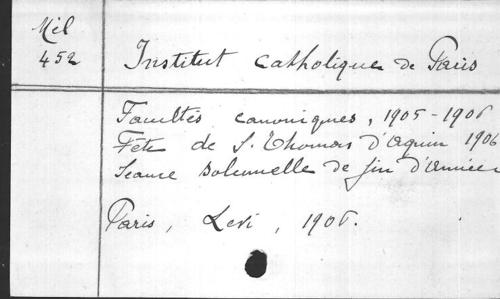 Mél
452
Institut Catholique de Paris
Facultés canoniques, 1905-1906
Fête de S. Thomas d'Aquin 1906
Séance solennelle de fin d'année
Paris, Levé, 1906.